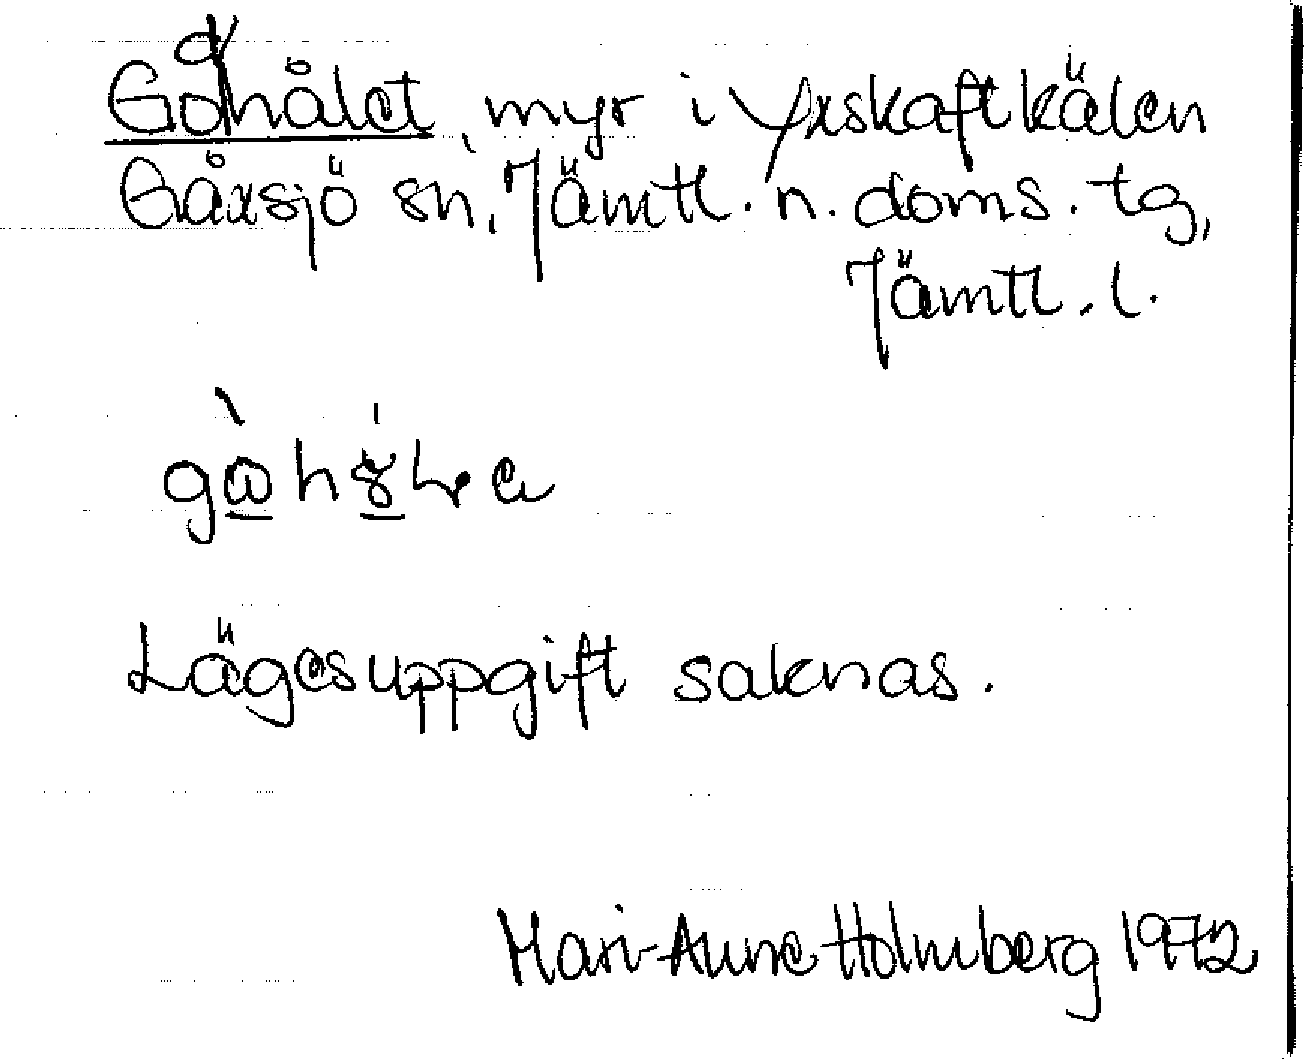 Godhålet, myr i Yxskaftkälen
Gåxsjö sn, Jämtl. n. doms. tg,
Jämtl. l.
Lägesuppgift saknas.
Mari-Anne Holmberg 1972